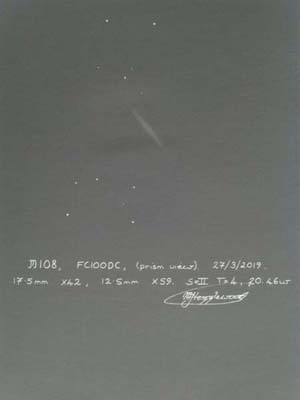 M108, FC100DC, (prism view) 27/3/2019.
17.5mm x42, 12.5mm x59. S=II T=4, 20.46UT